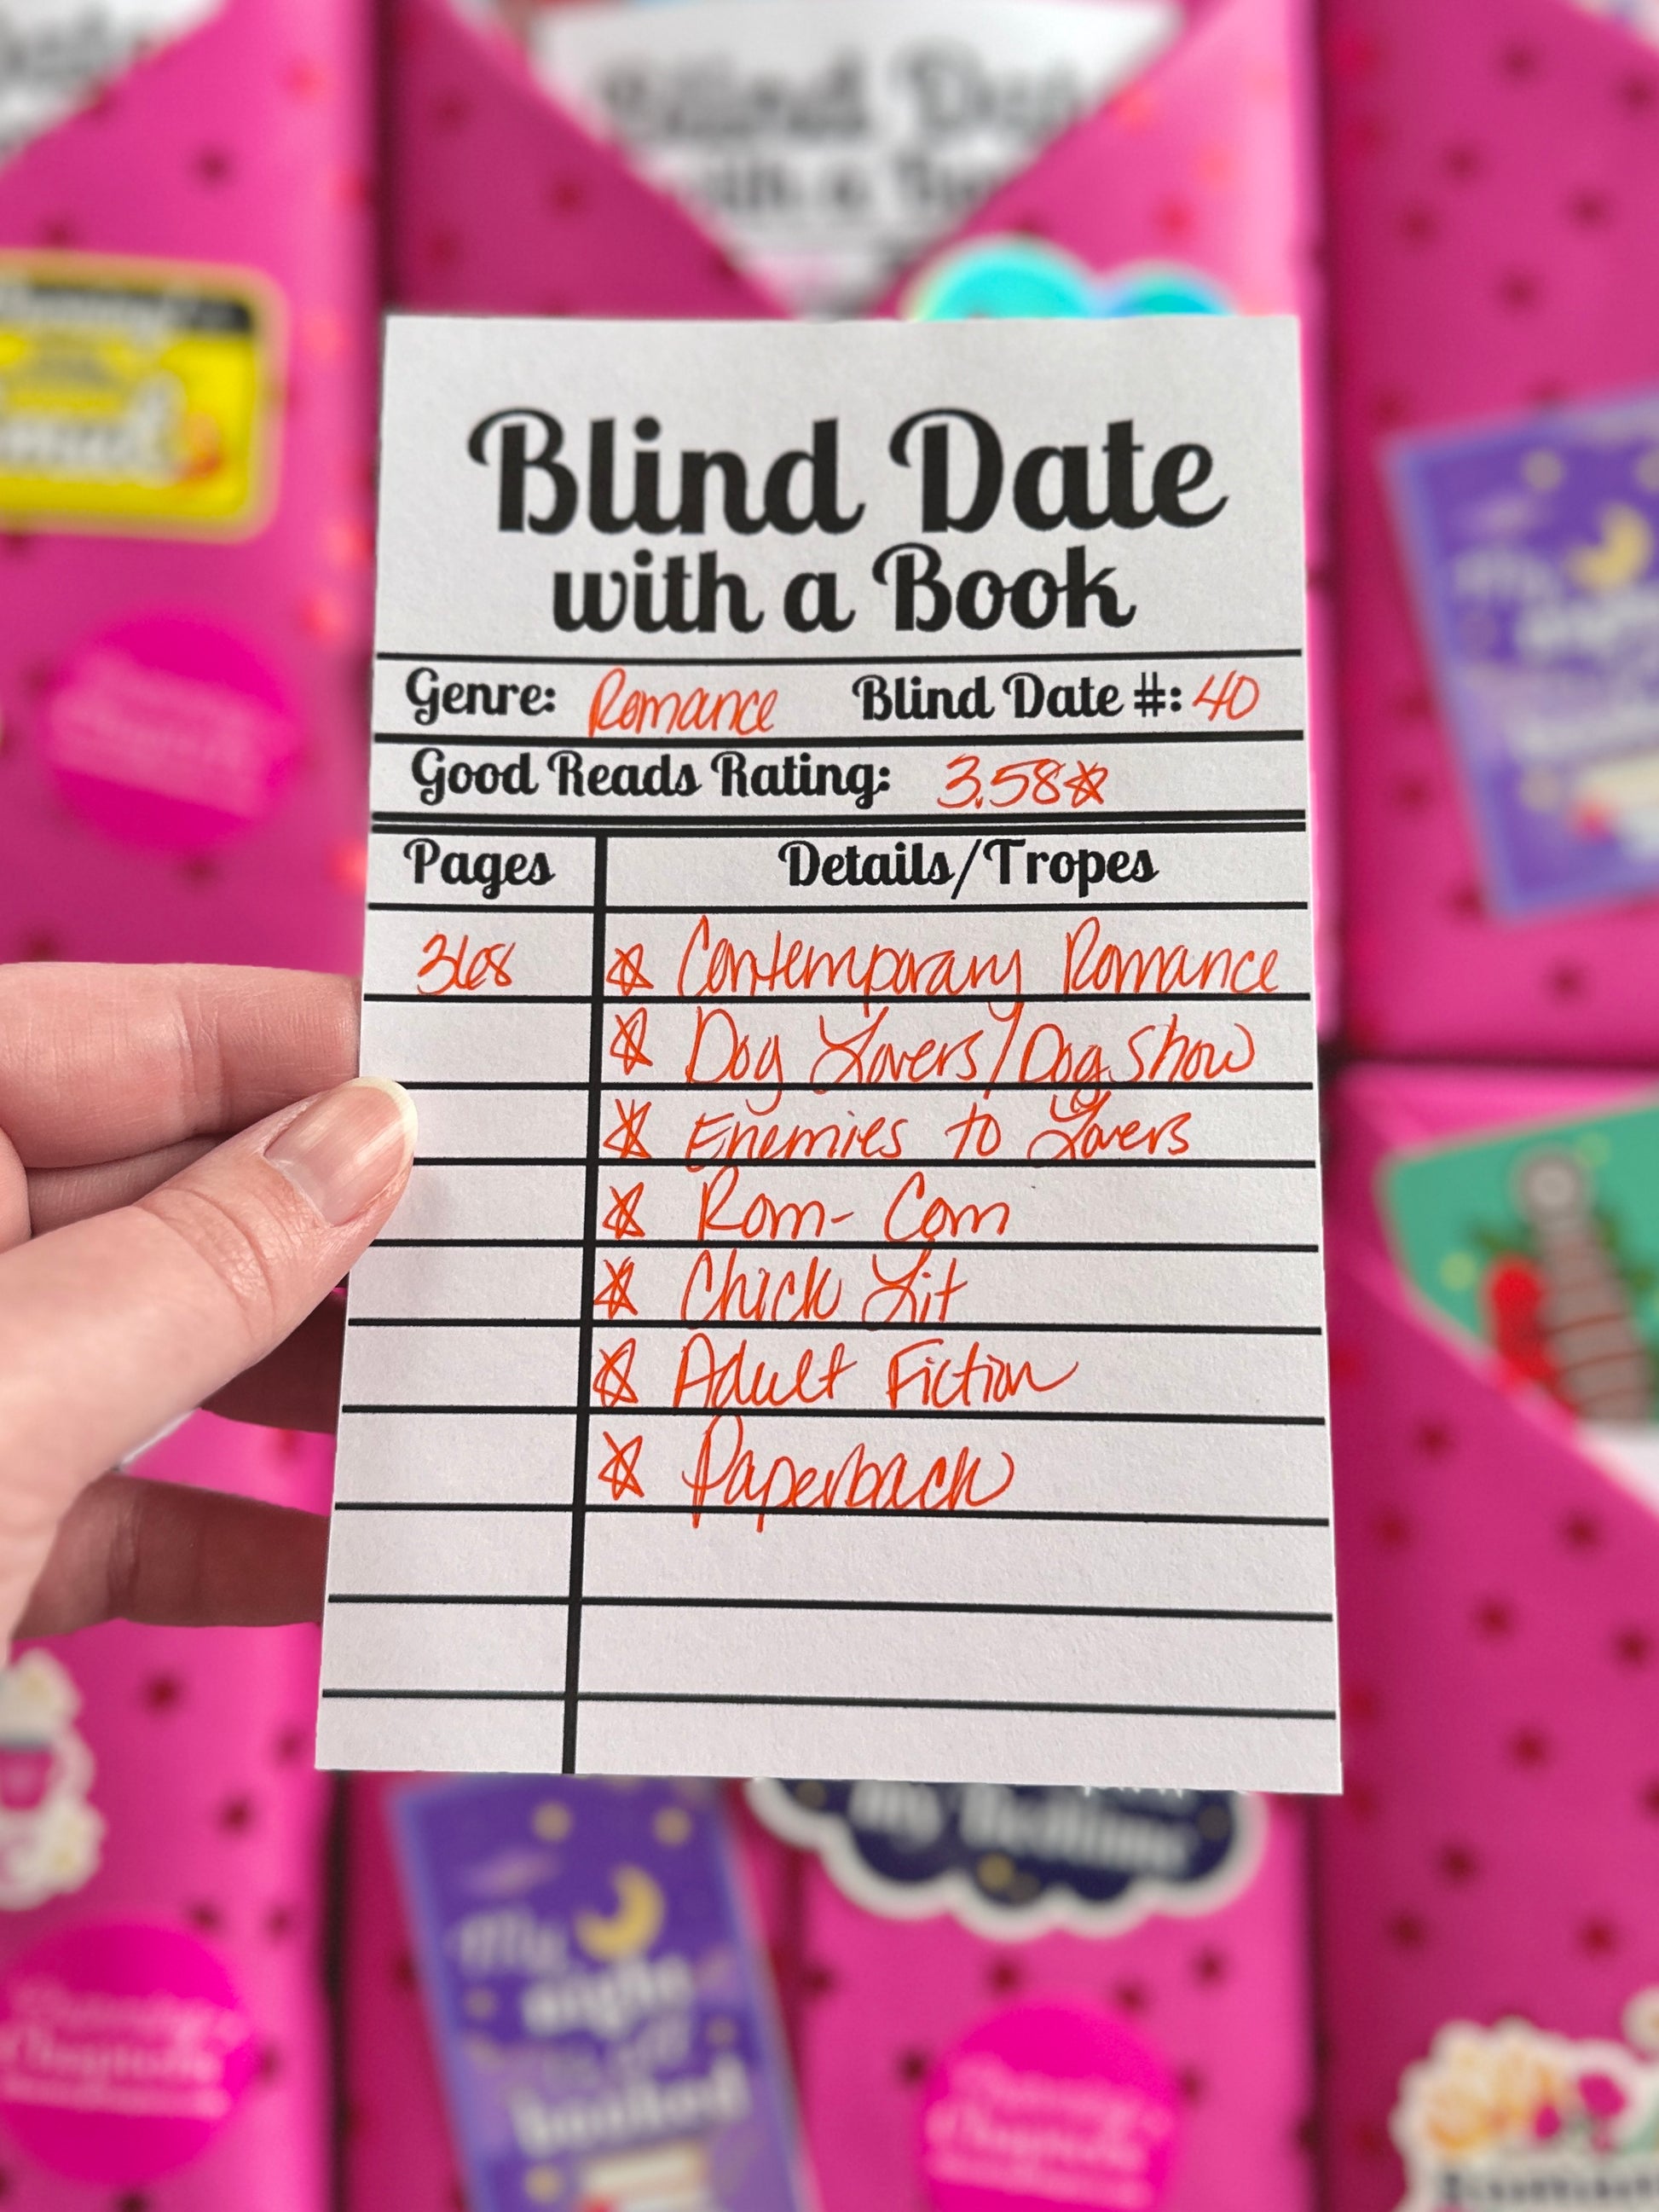 Blind Date
with a Book
Genre: Romance Blind Date #: 40
Good Reads Rating: 3.58☆
Pages Details/Tropes
368 ☆ Contemporary Romance
☆ Dog Lovers/Dog Show
☆ Enemies to Lovers
☆ Rom-Com
☆ Chick Lit
☆ Adult Fiction
☆ Paperback
my Bedtime
My
night
booked